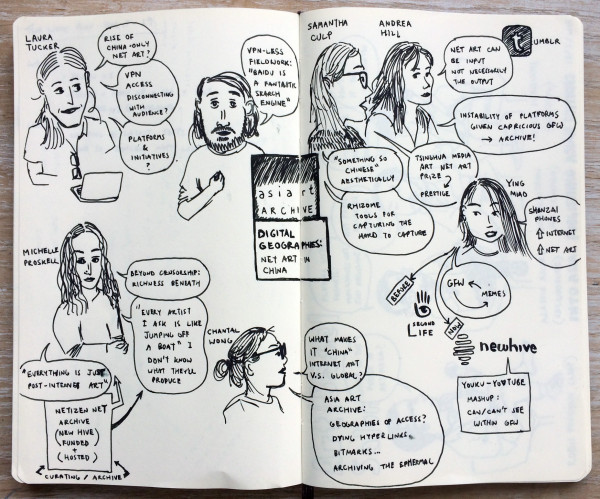 LAURA
TUCKER
RISE OF
CHINA-ONLY
NET ART?
VPN
ACCESS
DISCONNECTING
WITH
AUDIENCE?
PLATFORMS
&
INITIATIVES
?
VPN-LESS
FIELDWORK:
"BAIDU IS
A FANTASTIC
SEARCH
ENGINE"
asia art
ARCHIVE
DIGITAL
GEOGRAPHIES:
NET ART IN
CHINA
MICHELLE
PROSKELL
BEYOND CENSORSHIP:
RICHNESS BENEATH
"EVERY ARTIST
I ASK IS LIKE
JUMPING OFF
A BOAT" I
DON'T KNOW
WHAT THEY'LL
PRODUCE
"EVERYTHING IS JUST
POST-INTERNET ART"
NETIZEN NET
ARCHIVE
(NEW HIVE)
(FUNDED)
+
(HOSTED)
CURATING / ARCHIVE
CHANTAL
WONG
WHAT MAKES
IT "CHINA"
INTERNET ART
V.S. GLOBAL?
ASIA ART
ARCHIVE:
GEOGRAPHIES OF ACCESS?
DYING HYPERLINKS,
BITMARKS...
ARCHIVING THE EPHERMAL
SAMANTHA
CULP
ANDREA
HILL
t
UMBLR
NET ART CAN
BE INPUT
NOT NECESSARILY
THE OUTPUT
INSTABILITY OF PLATFORMS
GIVEN CAPRICIOUS GFW
→ ARCHIVE!
"SOMETHING SO
CHINESE"
AESTHETICALLY
RHIZOME
TOOLS FOR
CAPTURING THE
HARD TO CAPTURE
TSINGHUA MEDIA
ART NET ART
PRIZE
PRESTIGE
YING
MIAO
SHANZAI
PHONES
⇧ INTERNET
⇧ NET ART
GFW
MEMES
BEFORE
SECOND
LIFE
NOW
newhive
YOUKU-YOUTUBE
MASHUP:
CAN/CAN'T SEE
WITHIN GFW